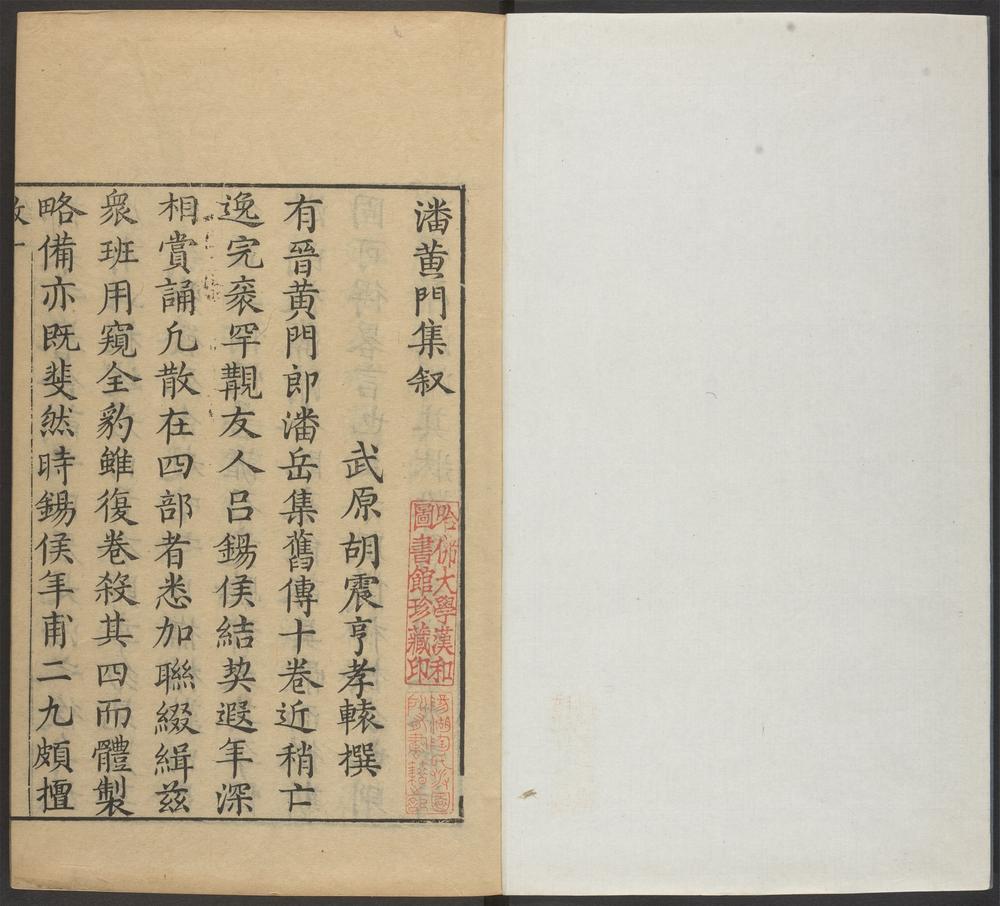 潘黄門集叙
武原胡震亨孝轅撰
有晉黄門郎潘岳集舊傳十卷近稍亡
逸完袠罕覯友人吕錫侯結契遐年深
相賞誦凢散在四部者悉加聯綴緝兹
衆班用窺全豹雖復卷殺其四而體製
略備亦既斐然時錫侯年甫二九頗擅
叙一
哈佛大學漢和
圖書館珍藏印